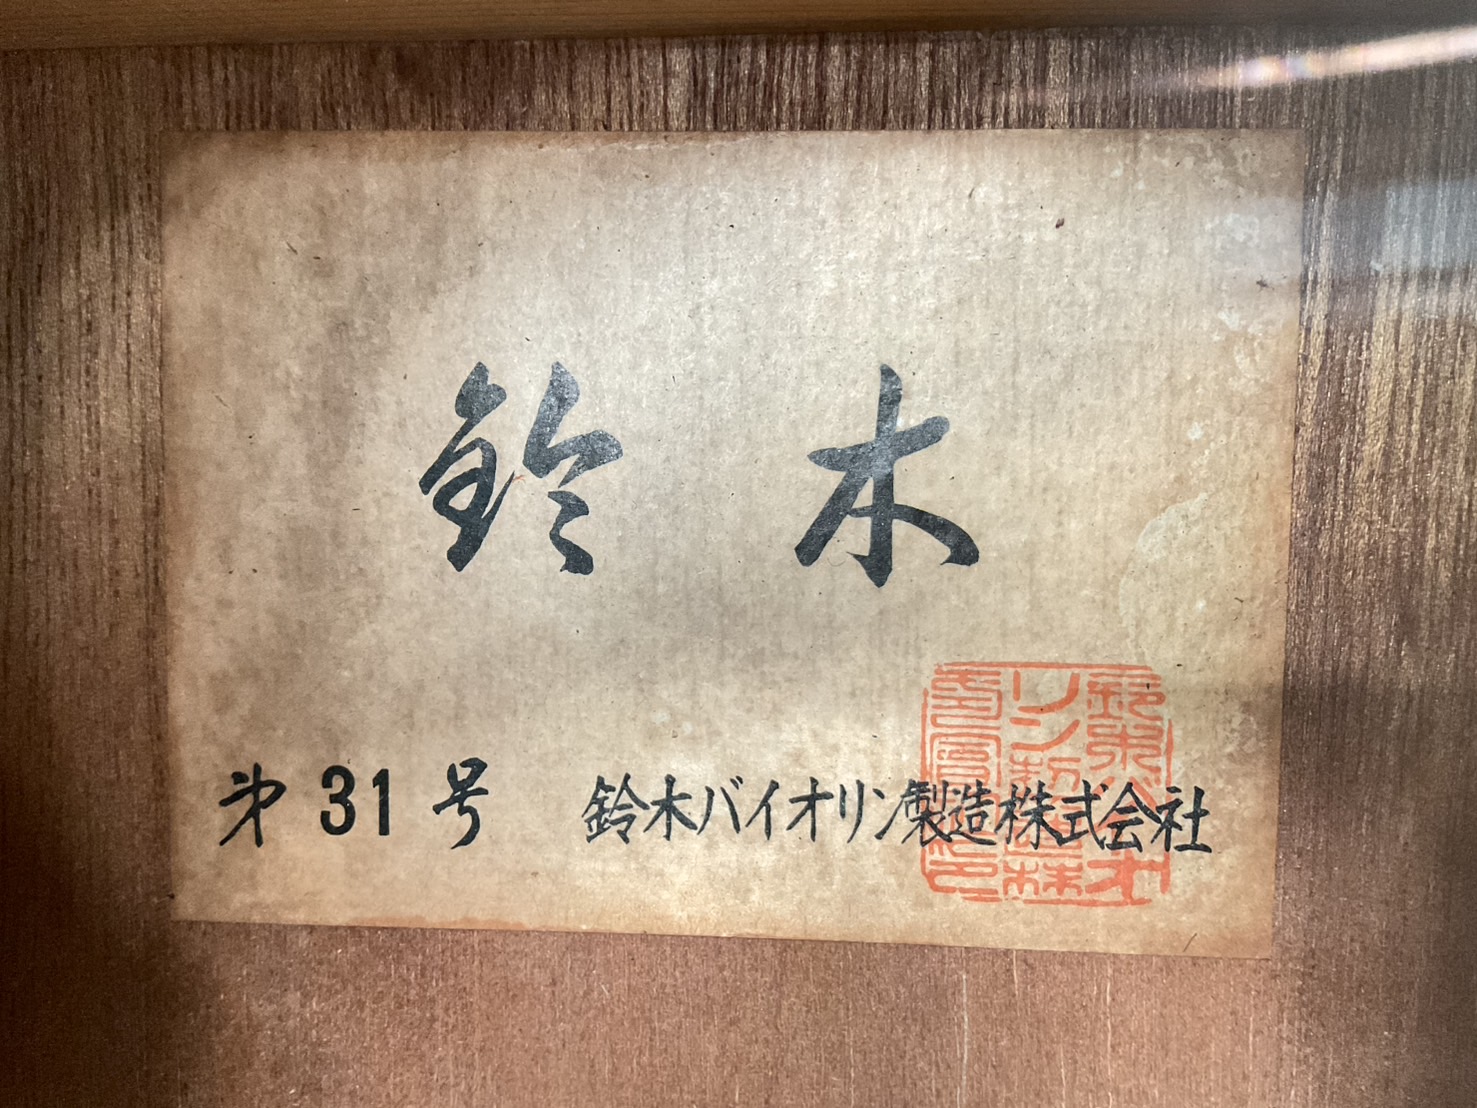 鈴木
第31号 鈴木バイオリン製造株式会社